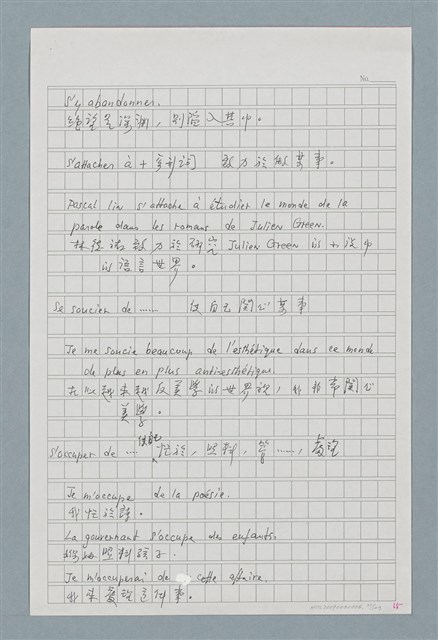 No.
S'y abandonner.
絕望是深淵，別陷入其中。
S'attacher à + 名詞 致力於做某事。
Pascal lin s'attache à étudier le monde de la
parole dans les romans de Julien Green.
林德祐致力於研究 Julien Green 的小說中
的語言世界。
Se soucier de …… 使自己關心某事
Je me soucie beaucoup de l'esthétique dans ce monde
de plus en plus antiesthétique.
在這越來越反美學的世界裡，我非常關心
美學。
使自己
S'occuper de …… 忙於，照料，管……，處理
Je m'occupe de la poésie.
我忙於詩。
La gouvernant s'occupe des enfants.
保姆照料孩子.
Je m'occuperai de cette affaire.
我來處理這件事。